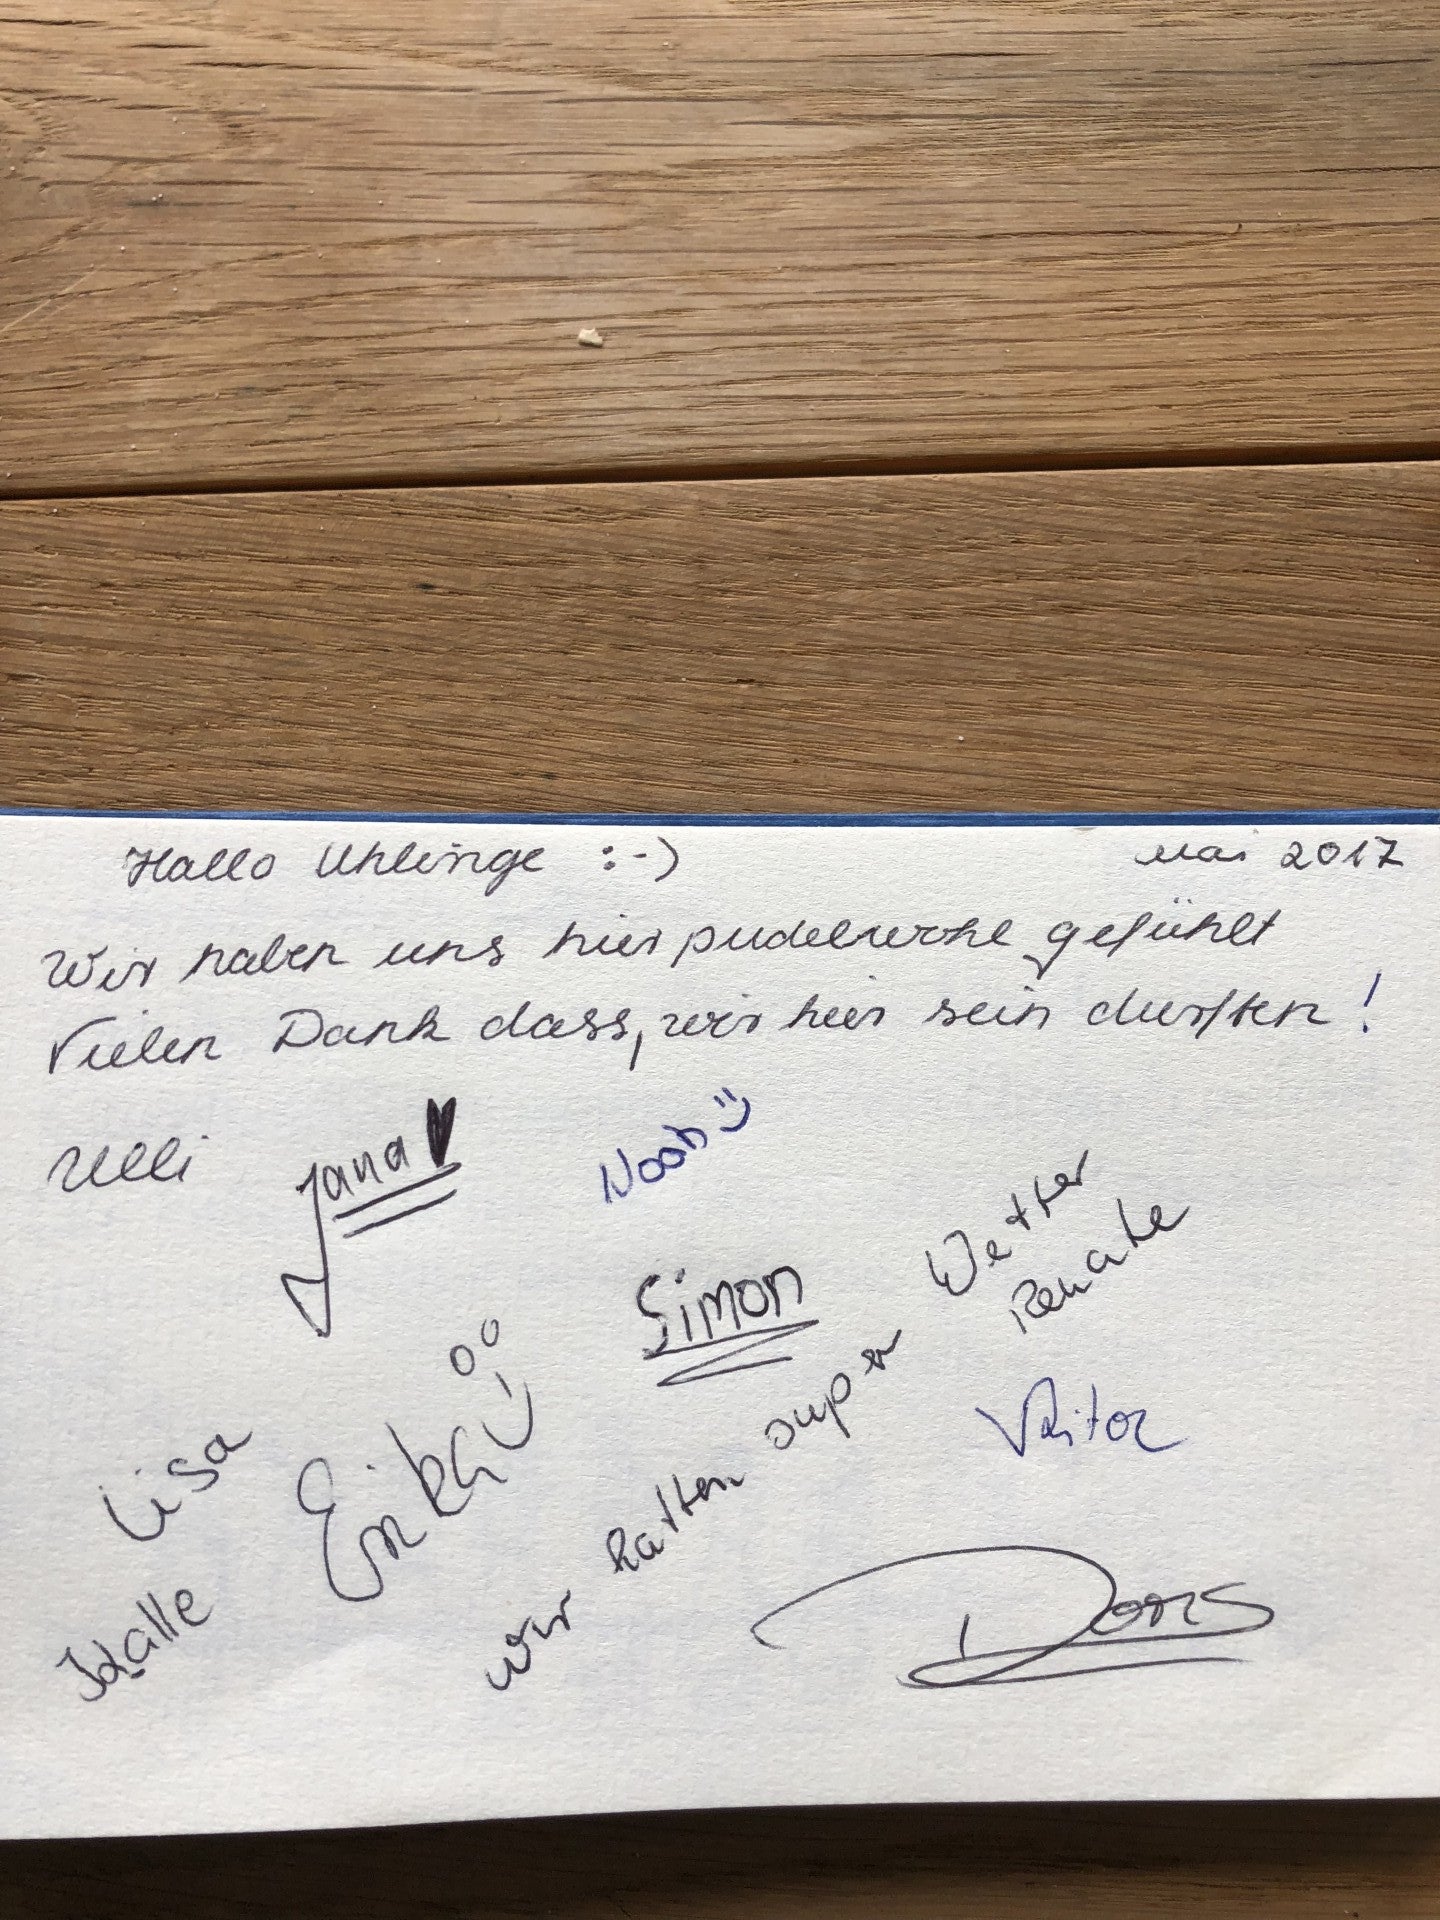 Hallo Uhlinge :-)
Mai 2017
Wir haben uns hier pudelwohl gefühlt
Vielen Dank dass, wir hier sein durften!
Ulli
Jana
Noah
Simon
Lisa
Erika
Kalle
Wir hatten super Wetter
Renate
Doris